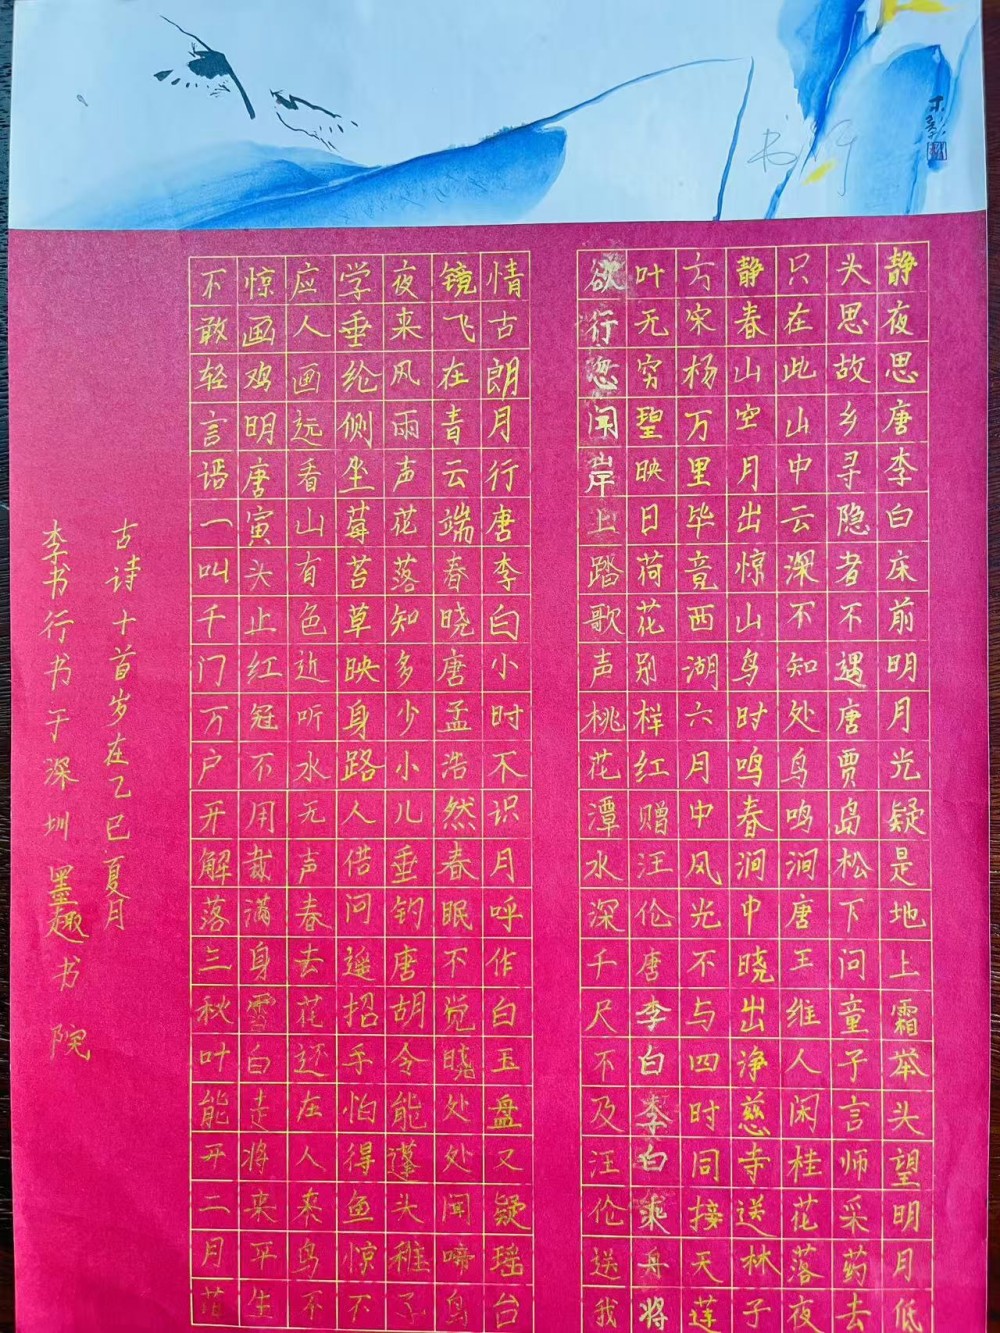 静夜思唐李白床前明月光疑是地上霜举头望明月低
头思故乡寻隐者不遇唐贾岛松下问童子言师采药去
只在此山中云深不知处鸟鸣涧唐王维人闲桂花落夜
静春山空月出惊山鸟时鸣春涧中晓出净慈寺送林子
方宋杨万里毕竟西湖六月中风光不与四时同接天莲
叶无穷碧映日荷花别样红赠汪伦唐李白李白乘舟将
欲行忽闻岸上踏歌声桃花潭水深千尺不及汪伦送我
情古朗月行唐李白小时不识月呼作白玉盘又疑瑶台
镜飞在青云端春晓唐孟浩然春眠不觉晓处处闻啼鸟
夜来风雨声花落知多少小儿垂钓唐胡令能蓬头稚子
学垂纶侧坐莓苔草映身路人借问遥招手怕得鱼惊不
应人画远看山有色近听水无声春去花还在人来鸟不
惊画鸡明唐寅头止红冠不用裁满身雪白走将来平生
不敢轻言语一叫千门万户开解落三秋叶能开二月花
古诗十首岁在乙巳夏月
李书行书于深圳墨趣书院